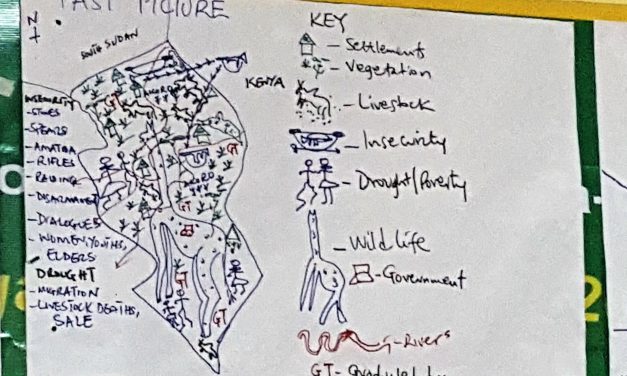 PAST PICTURE
N
SOUTH SUDAN
KENYA
INSECURITY
-SPEARS
-RIFLES
-RAIDING
-DIALOGUES
-WOMEN, YOUTHS,
ELDERS
DROUGHT
-MIGRATION
-LIVESTOCK DEATHS,
SALE
GT
GT
GT
GT
GT
KEY
- Settlements
- Vegetation
- Livestock
- Insecurity
- Drought/Poverty
- Wild life
- Government
- Rivers
GT-